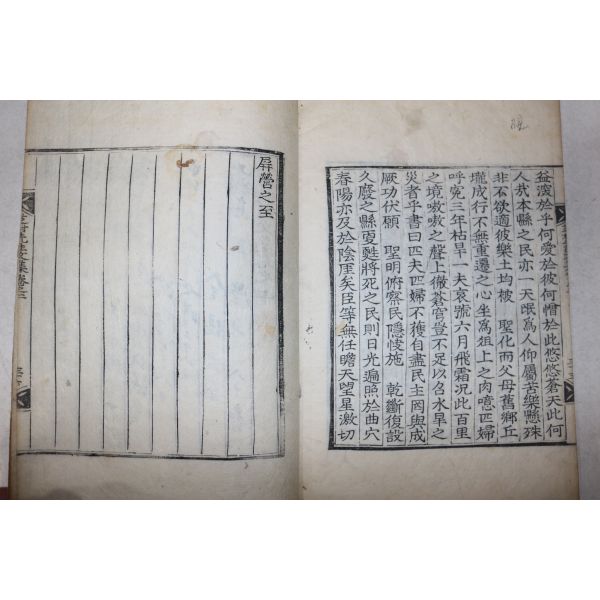 益深於乎何愛於彼何憎於此悠悠蒼天此何
人哉本縣之民亦一天氓爲人仰屬苦樂懸殊
非不欲適彼樂土均被 聖化而父母舊鄕丘
壠成行不無重遷之心坐爲俎上之肉噫匹婦
呼寃三年枯旱一夫哀號六月飛霜况此百里
之境嗷嗷之聲上徹蒼穹豈不足以召水旱之
災者乎書曰匹夫匹婦不獲自盡民主罔與成
厥功伏願 聖明俯察民隱快施 乾斷復設
久廢之縣更甦將死之民則日光遍照於曲穴
春陽亦及於陰厓矣臣等無任瞻天望星激切
屛營之至